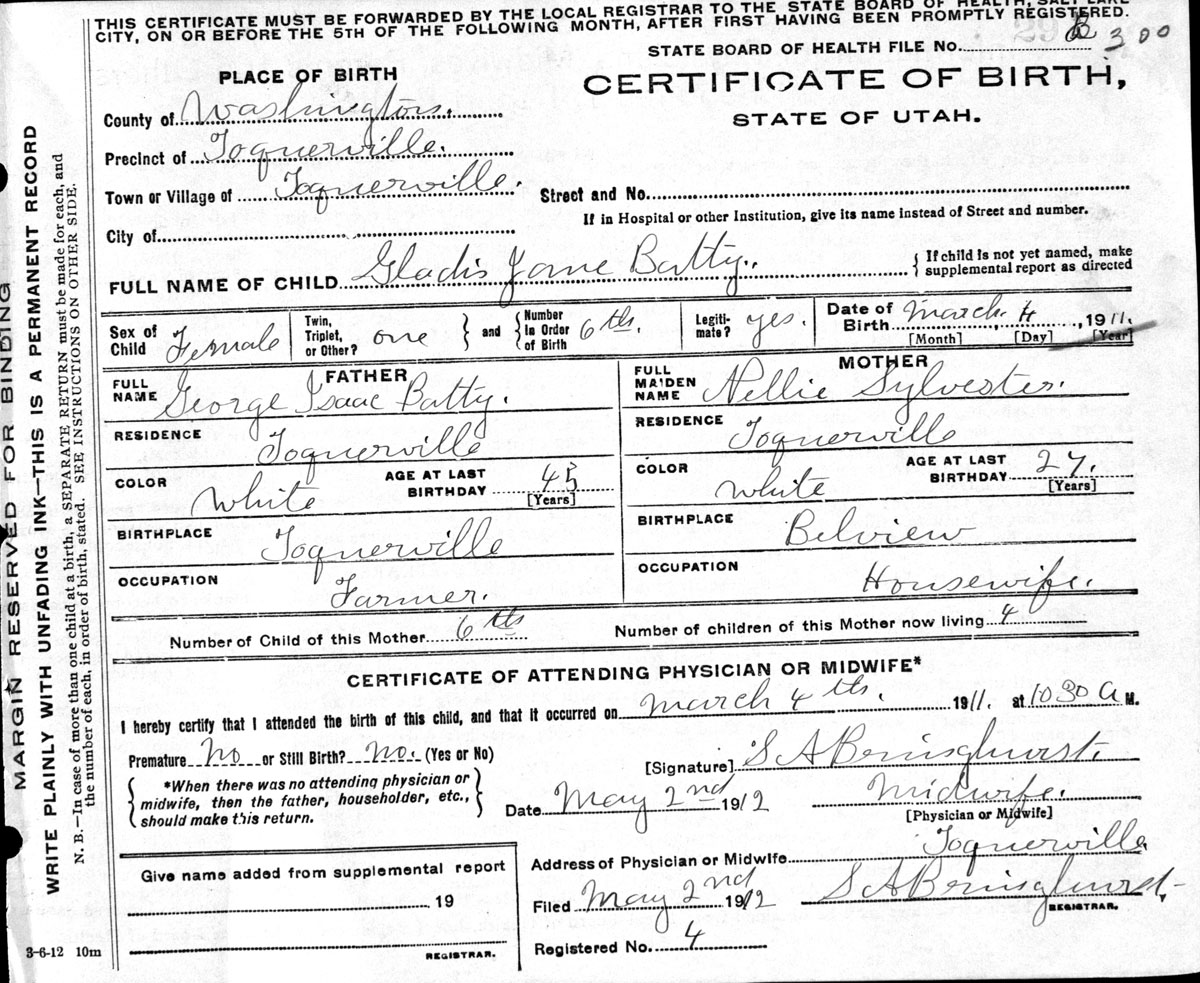 THIS CERTIFICATE MUST BE FORWARDED BY THE LOCAL REGISTRAR TO THE STATE BOARD OF HEALTH, SALT LAKE
CITY, ON OR BEFORE THE 5TH OF THE FOLLOWING MONTH, AFTER FIRST HAVING BEEN PROMPTLY REGISTERED.
STATE BOARD OF HEALTH FILE No. 300
PLACE OF BIRTH
CERTIFICATE OF BIRTH,
STATE OF UTAH.
County of Washington.
Precinct of Toquerville.
Town or Village of Toquerville. Street and No.
If in Hospital or other Institution, give its name instead of Street and number.
City of
FULL NAME OF CHILD Gladis Jane Batty. { If child is not yet named, make
supplemental report as directed
Sex of Child Female
Twin, Triplet, or Other? one } and { Number in Order of Birth 6th.
Legiti-mate? yes.
Date of Birth March 4, 1911.
[Month] [Day] [Year]
FATHER
FULL NAME George Isaac Batty.
RESIDENCE Toquerville
COLOR White AGE AT LAST BIRTHDAY 45 [Years]
BIRTHPLACE Toquerville
OCCUPATION Farmer.
MOTHER
FULL MAIDEN NAME Nellie Sylvester.
RESIDENCE Toquerville
COLOR White AGE AT LAST BIRTHDAY 27. [Years]
BIRTHPLACE Belview
OCCUPATION Housewife.
Number of Child of this Mother 6th Number of children of this Mother now living 4
CERTIFICATE OF ATTENDING PHYSICIAN OR MIDWIFE*
I hereby certify that I attended the birth of this child, and that it occurred on March 4th. 1911. at 1030 A M.
Premature No or Still Birth? No. (Yes or No)
{ *When there was no attending physician or
midwife, then the father, householder, etc.,
should make this return. }
[Signature] S A Bringhurst.
Date May 2nd 1912 Midwife.
[Physician or Midwife]
Address of Physician or Midwife Toquerville
Filed May 2nd 1912 S A Bringhurst,
REGISTRAR.
Registered No. 4
Give name added from supplemental report
19
REGISTRAR.
3-6-12 10m
MARGIN RESERVED FOR BINDING
WRITE PLAINLY WITH UNFADING INK—THIS IS A PERMANENT RECORD
N. B.—In case of more than one child at a birth, a SEPARATE RETURN must be made for each, and
the number of each, in order of birth, stated. SEE INSTRUCTIONS ON OTHER SIDE.